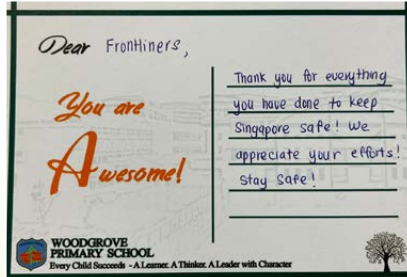 Dear Frontliners,
You are
Awesome!
Thank you for everything
you have done to keep
Singapore safe! We
appreciate your efforts!
Stay Safe!
WOODGROVE
PRIMARY SCHOOL
Every Child Succeeds - A Learner. A Thinker. A Leader with Character